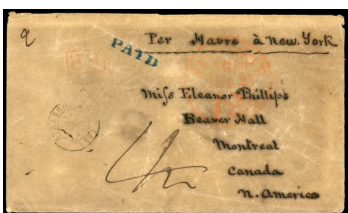 Per Havre à New. York
PAID
Miss Eleanor Phillips
Beaver Hall
Montreal
Canada
N. America